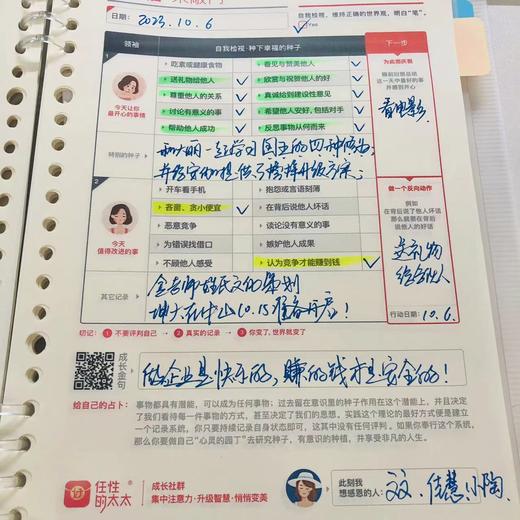 日期： 2023.10.6
自我检视，维持正确的世界观，明白“笔”。
Yes
领袖
自我检视·种下幸福的种子
下一步
1
今天让你
最开心的事情
吃素或健康食物
看见与赞美他人
送礼物给他人
欣赏与祝贺他人的好
尊重他人的关系
真诚给到建设性意见
讨论有意义的事
希望他人安好，包括对手
帮助他人成功
反思事物从何而来
为此而庆祝
睡前回想总结
这一天中最好的事
并感到开心
看电影
特别的种子
和大明一起学习国王的四种修为，
2
今天
值得改进的事
开车看手机
抱怨或言语刻薄
吝啬、贪小便宜
在背后说他人坏话
恶意竞争
谈论没有意义的事
为错误找借口
嫉妒他人成果
不顾他人感受
认为竞争才能赚到钱
做一个反向动作
例如
在背后说了他人坏话
那么就要在背后
说他人的好话
送礼物
给合伙人
行动日期 10.6.
其它记录
10.15准备开房！
切记： 1 不要评判自己 → 2 真实的记录 → 3 你变了，世界就变了
成长金句
做企业是快乐的，赚的钱才是安全的！
给自己的占卜：
事物都具有潜能，可以成为任何事物；过去留在意识里的种子作用在这个潜能上，并且决定
了我们看待每一件事物的方式，甚至决定了我们的思想。实践这个理论的最好方式便是建立
一个记录系统，你只要持续记录自身状态即可，这其中没有任何评判。如果你奉行这个系统，
那么你要做自己“心灵的园丁”去研究种子，有意识的种植，并享受非凡的人生。
任性
的太太
成长社群
集中注意力·升级智慧·悄悄变美
此刻我
想感恩的人：
文文、佳慧、小陶